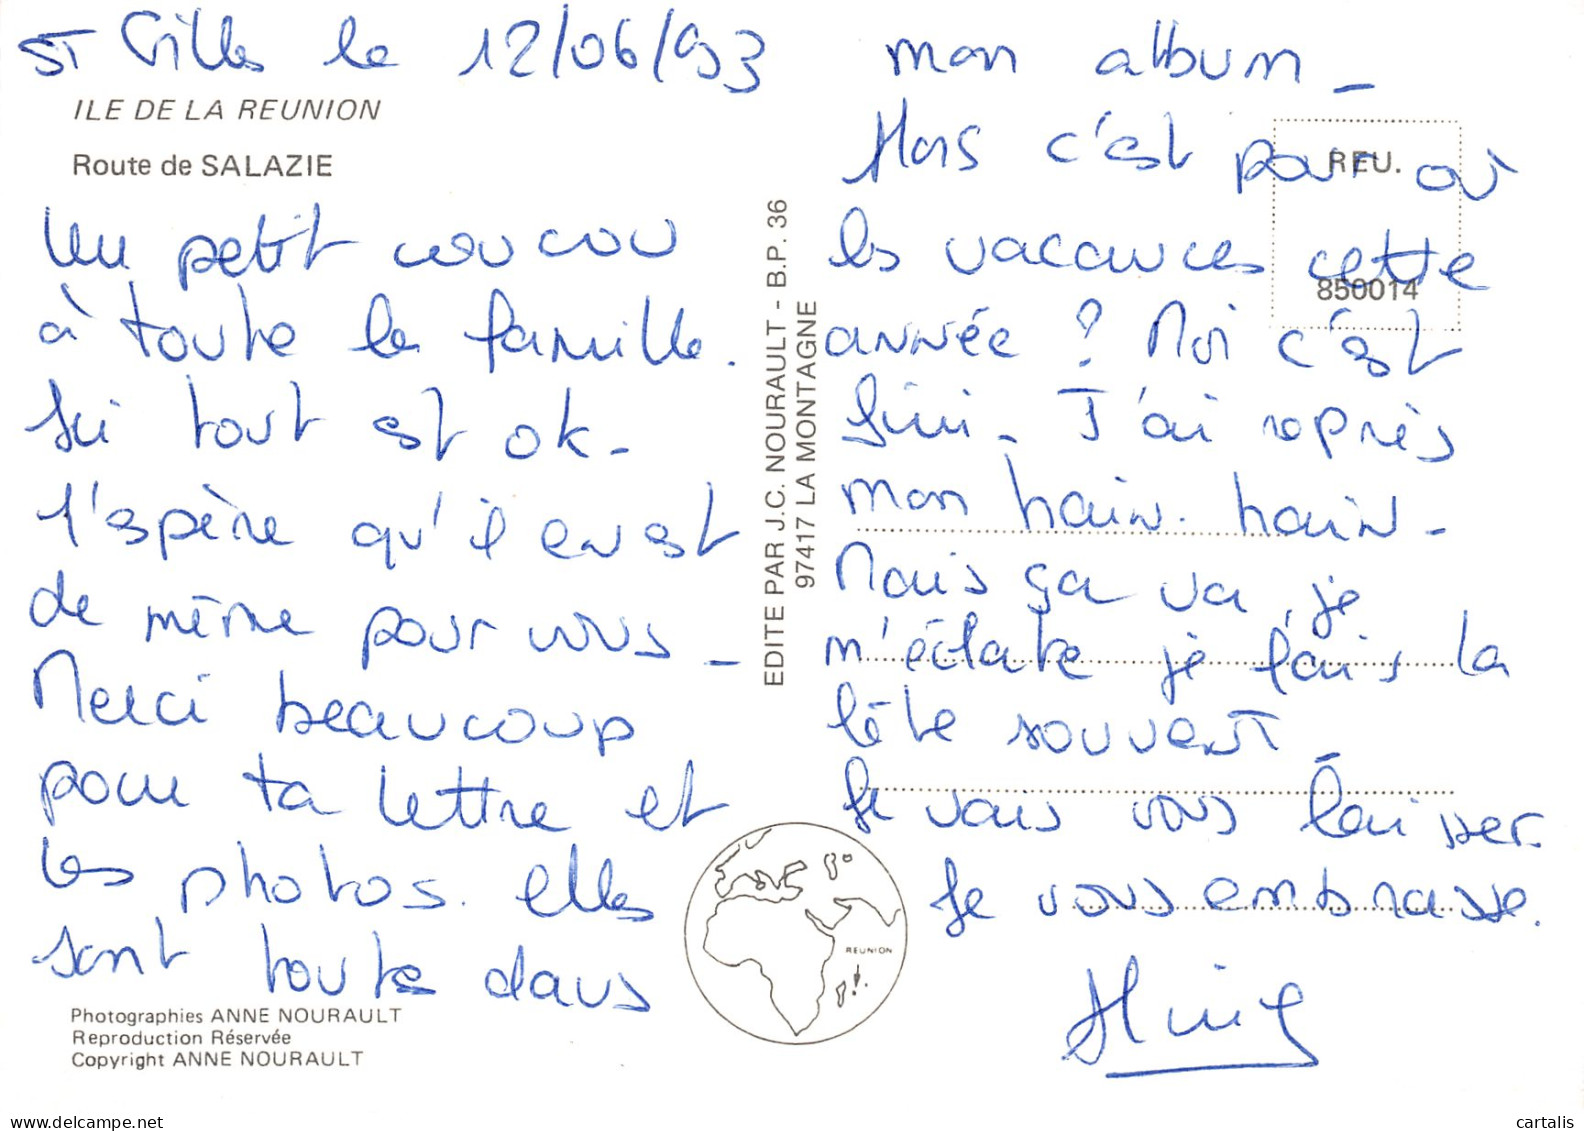 ST Gilles le 12/06/93
ILE DE LA REUNION
Route de SALAZIE
Un petit coucou
à toute la famille.
Ici tout est ok -
J'espère qu'il en est
de même pour vous -
Merci beaucoup
pour ta lettre et
les photos. elles
sont toutes dans
Photographies ANNE NOURAULT
Reproduction Réservée
Copyright ANNE NOURAULT
EDITE PAR J.C. NOURAULT - B.P. 36
97417 LA MONTAGNE
REUNION
mon album -
Alors c'est pour où
REU.
les vacances cette
850014
année ? Moi c'est
fini - J'ai repris
mon train. train -
Mais ça va, je
m'éclate je fais la
fête souvent -
Je vais vous laisser.
Je vous embrasse.